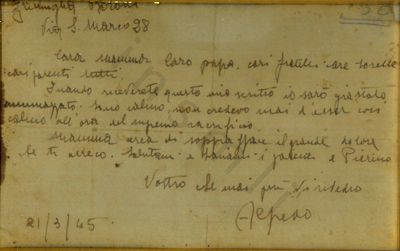 Famiglia
Via S. Marco 28
Cara mamma Caro papà, cari fratelli care sorelle
cari parenti tutti.
Quando riceverete questo mio scritto io sarò già stato
ammazzato. Sono calmo, non credevo mai d'esser così
calmo all'ora del supremo sacrificio.
Mamma cerca di sopportare il grande dolore
che ti arreco. Salutami i parenti e Pierino
Vostro che mai più vi rivedrò
Alfredo
21/3/45